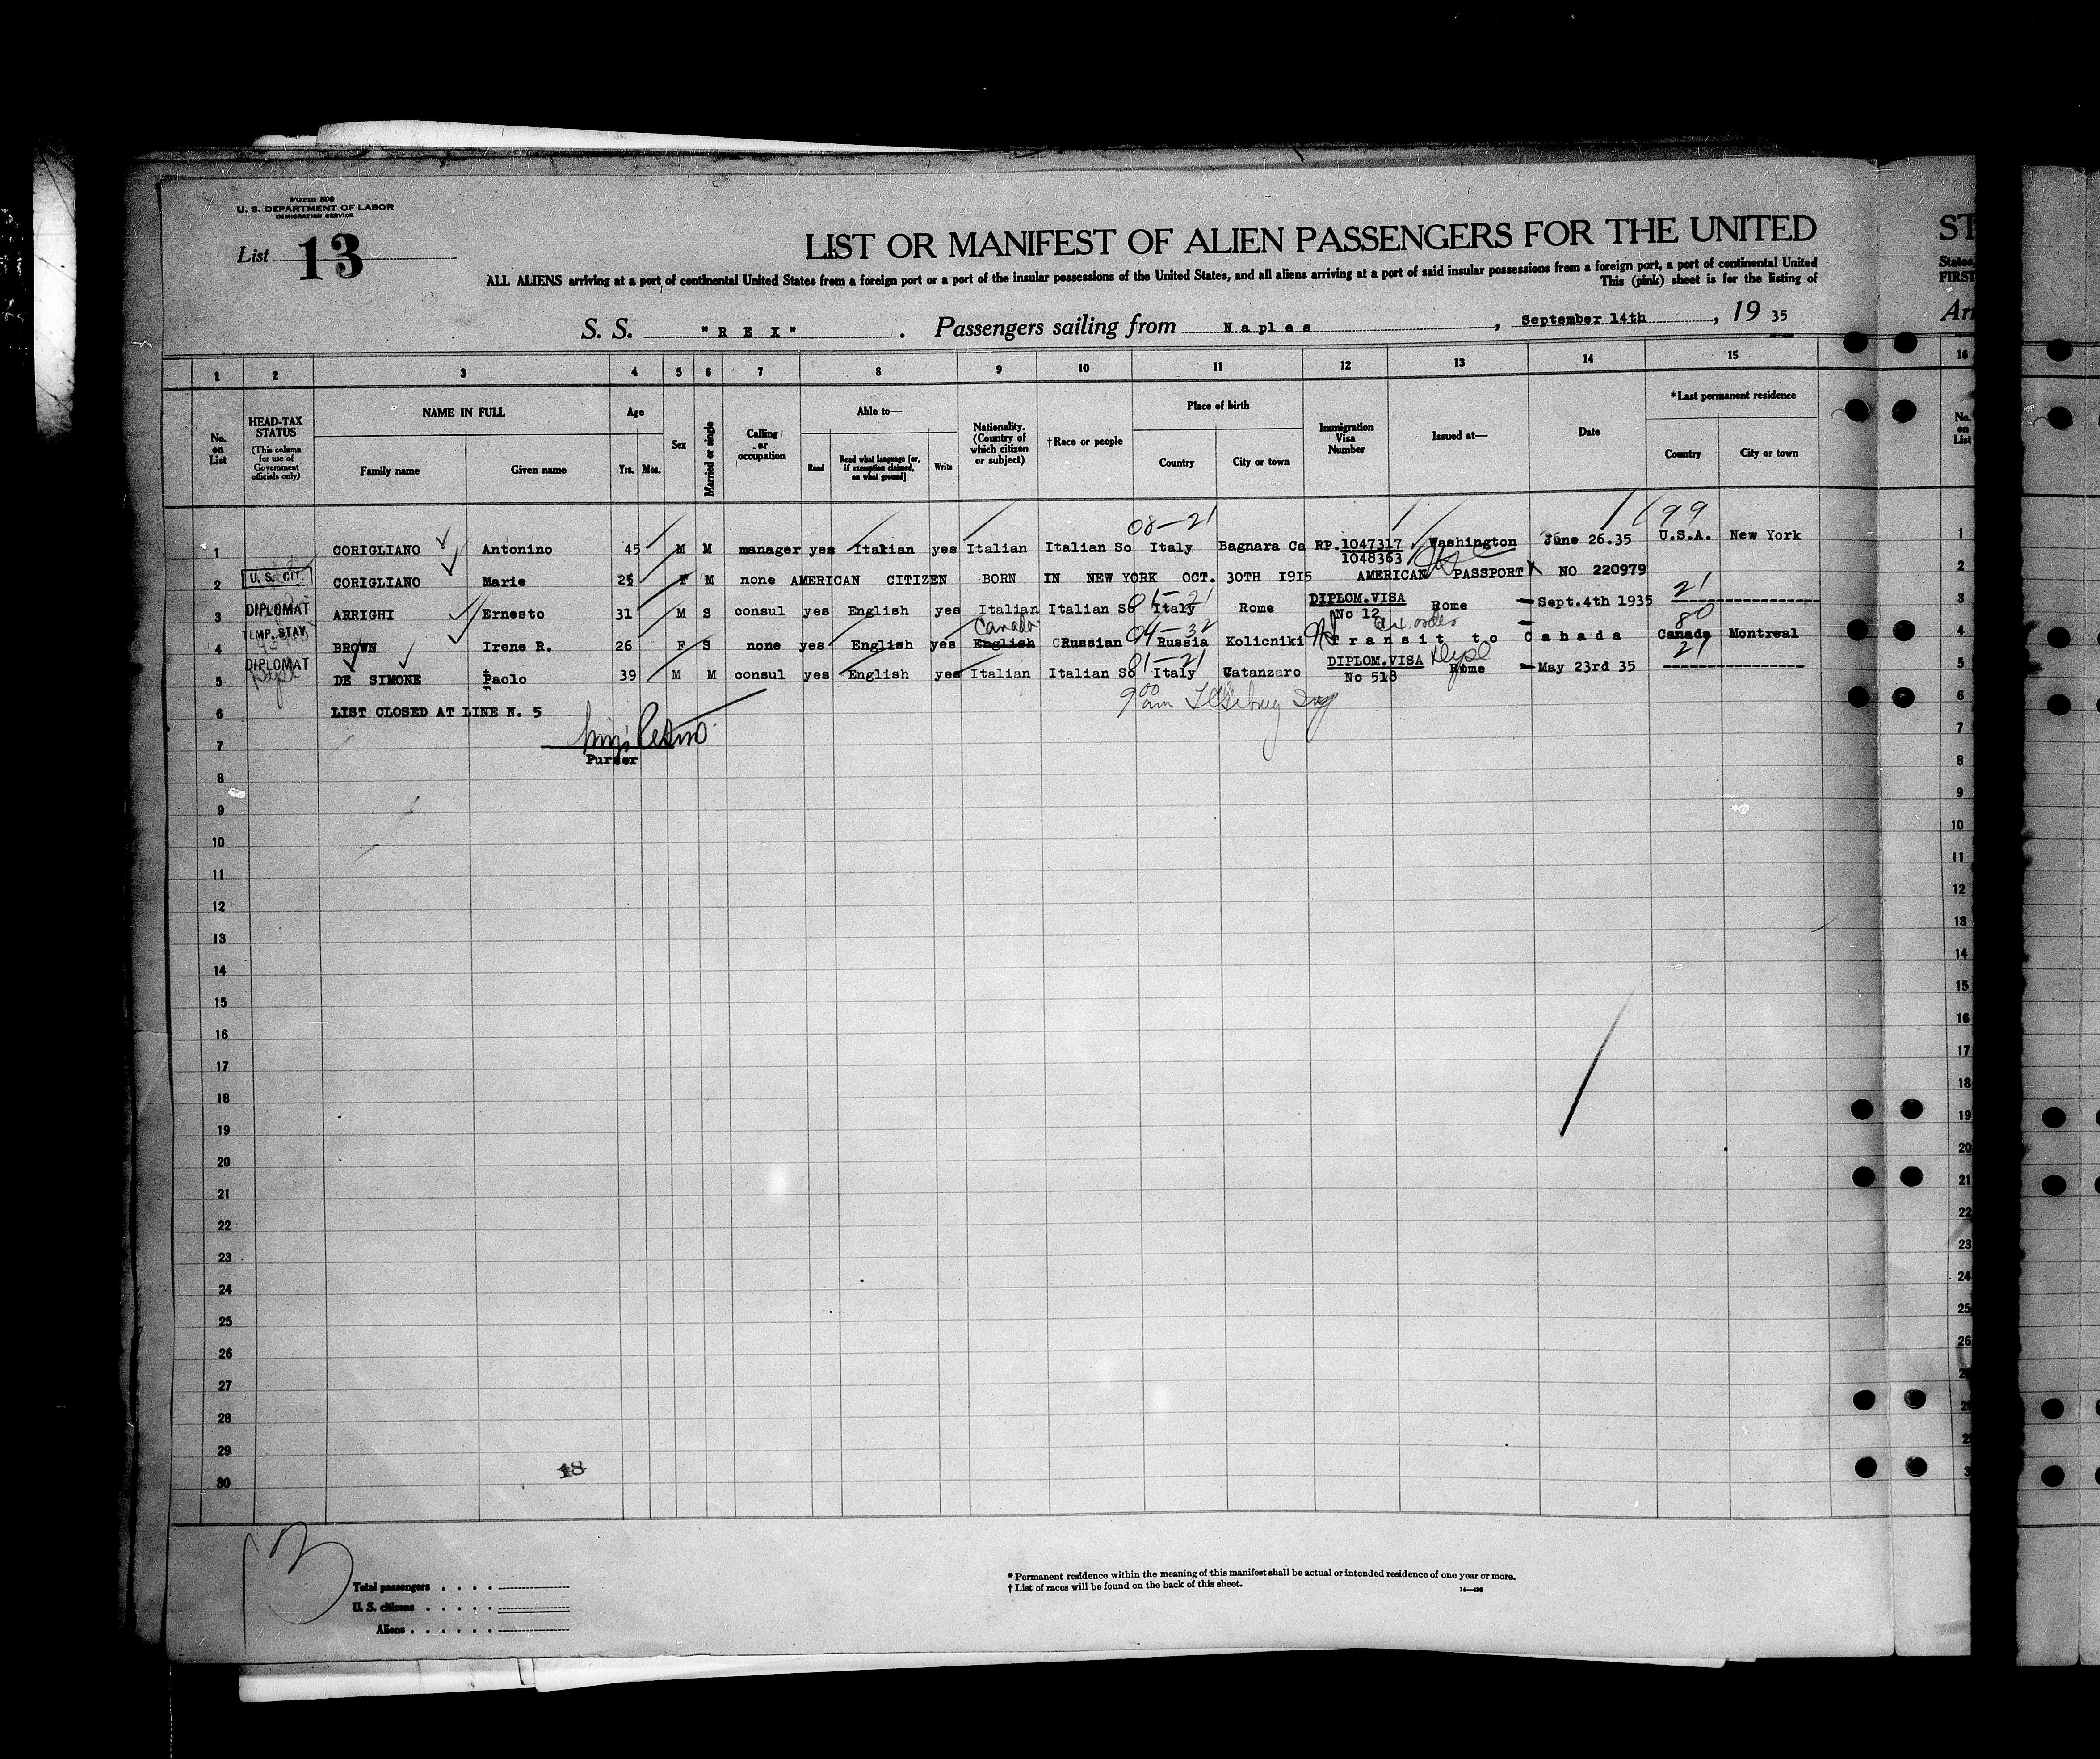 Form 500
U. S. DEPARTMENT OF LABOR
IMMIGRATION SERVICE
List 13
LIST OR MANIFEST OF ALIEN PASSENGERS FOR THE UNITED
ST
ALL ALIENS arriving at a port of continental United States from a foreign port or a port of the insular possessions of the United States, and all aliens arriving at a port of said insular possessions from a foreign port, a port of continental United
States,
This (pink) sheet is for the listing of
FIRST
S. S. "REX". Passengers sailing from Naples, September 14th, 19 35
Arr
1 2 3 4 5 6 7 8 9 10 11 12 13 14 15 16
No. on List
HEAD-TAX STATUS
(This column for use of Government officials only)
NAME IN FULL
Family name Given name
Age
Yrs. Mos.
Sex
Married or single
Calling or occupation
Able to—
Read
Read what language [or, if exemption claimed, on what ground]
Write
Nationality. (Country of which citizen or subject)
†Race or people
Place of birth
Country City or town
Immigration Visa Number
Issued at—
Date
*Last permanent residence
Country City or town
No. on List
08-21 199
1 CORIGLIANO Antonino 45 M M manager yes Italian yes Italian Italian So Italy Bagnara Ca RP.1047317 Washington June 26.35 U.S.A. New York 1
1048363
2 U. S. CIT. CORIGLIANO Marie F M none AMERICAN CITIZEN BORN IN NEW YORK OCT. 30TH 1915 AMERICAN PASSPORT NO 220979 2
01-21 21
3 DIPLOMAT ARRIGHI Ernesto 31 M S consul yes English yes Italian Italian So Italy Rome DIPLOM.VISA No 12 Rome Sept.4th 1935 3
Canada 04-32 80
4 TEMP. STAY BROWN Irene R. 26 F S none yes English yes English Russian Russia Kolicniki Transit to Canada Canada Montreal 4
01-21 21
5 DIPLOMAT DE SIMONE Paolo 39 M M consul yes English yes Italian Italian So Italy Catanzaro DIPLOM.VISA No 518 Rome May 23rd 35 5
6 LIST CLOSED AT LINE N. 5 9 00 am 6
7 7
Purser
8 8
9 9
10 10
11 11
12 12
13 13
14 14
15 15
16 16
17 17
18 18
19 19
20 20
21 21
22 22
23 23
24 24
25 25
26 26
27
28
29
30
18
13
Total passengers
U. S. citizens
Aliens
* Permanent residence within the meaning of this manifest shall be actual or intended residence of one year or more.
† List of races will be found on the back of this sheet.